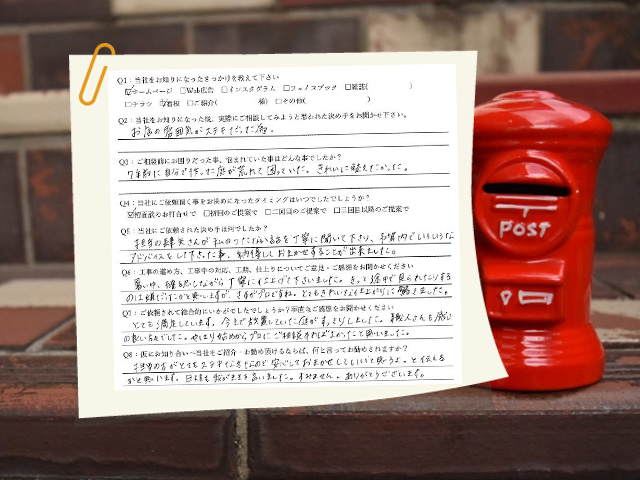 Q1：当社をお知りになったきっかけを教えて下さい
☑ホームページ □Web広告 □インスタグラム □フェイスブック □雑誌( )
□チラシ ☑看板 □ご紹介( 様) □その他( )
Q2：当社をお知りになった後、実際にご相談してみようと思われた決め手をお聞かせ下さい。
お店の雰囲気がステキだった為。
Q3：ご相談前にお困りだった事、悩まれていた事はどんな事でしたか？
7年前に自分で作った庭が荒れて困っていた。きれいに整えたかった。
Q4：当社にご依頼頂く事をお決めになったタイミングはいつでしたでしょうか？
☑初面談のお打合せで □初回のご提案で □二回目のご提案で □三回目以降のご提案で
Q5：当社にご依頼された決め手は何でしたか？
担当の さんが私のつたない話を丁寧に聞いて下さり、予算内でいろいろな
アドバイスをして下さった事。納得しておまかせすることが出来ました。
Q6：工事の進め方、工事中の対応、工期、仕上りについてご意見・ご感想をお聞かせください
暑い中、確認しながら丁寧に仕上げて下さいました。きっと途中で見られたりする
のは嫌だったかと思いますが、さすがプロですね。とてもきれいな仕上がりに驚きました。
Q7：ご依頼されて総合的にいかがでしたでしょうか？率直なご感想をお聞かせください
とても満足しています。今まで放置していた庭がすっきりしました。職人さんも感じ
の良い方でした。やはり始めからプロにご相談すればよかったと思いました。
Q8：仮にお知り合いへ当社をご紹介・お勧め頂けるならば、何と言ってお勧めされますか？
担当の方がとてもステキな方なので安心しておまかせしてもいいと思うよ。と伝える
かと思います。 我がままを言いました。すみません。ありがとうございます。
POST